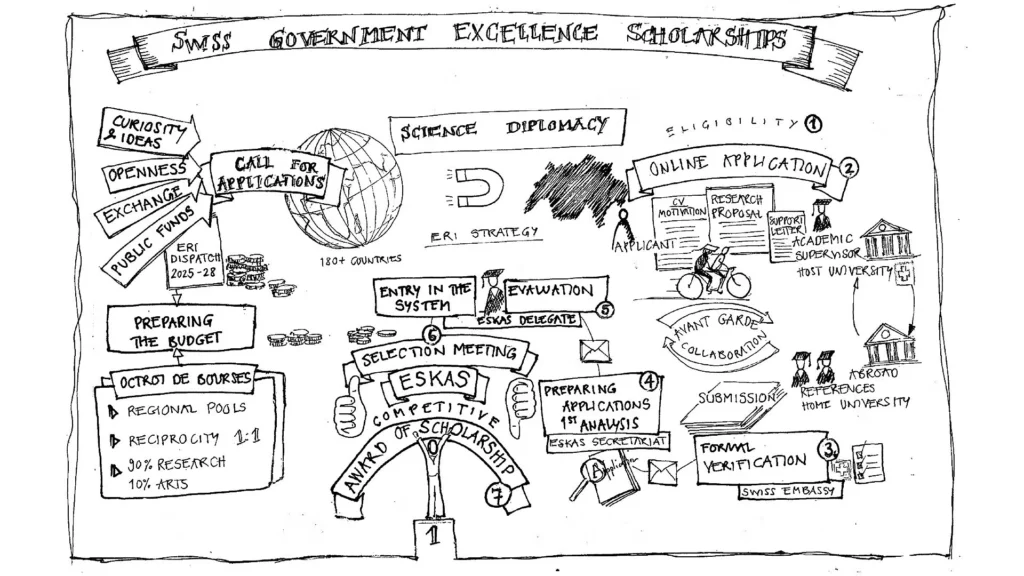 SWISS GOVERNMENT EXCELLENCE SCHOLARSHIPS
CURIOSITY
& IDEAS
OPENNESS
EXCHANGE
PUBLIC FUNDS
CALL FOR
APPLICATIONS
180+ COUNTRIES
SCIENCE DIPLOMACY
ERI STRATEGY
ERI
DISPATCH
2025-28
PREPARING
THE BUDGET
OCTROI DE BOURSES
REGIONAL POOLS
RECIPROCITY 1:1
90% RESEARCH
10% ARTS
ELIGIBILITY 1
ONLINE APPLICATION 2
CV
MOTIVATION
RESEARCH
PROPOSAL
SUPPORT
LETTER
APPLICANT
ACADEMIC
SUPERVISOR
HOST UNIVERSITY
AVANT GARDE
COLLABORATION
ABROAD
REFERENCES
HOME UNIVERSITY
SUBMISSION
FORMAL
VERIFICATION
3
SWISS EMBASSY
4
PREPARING
APPLICATIONS
1ST ANALYSIS
ESKAS SECRETARIAT
Application
ENTRY IN THE
SYSTEM
EVALUATION
5
ESKAS DELEGATE
6
SELECTION MEETING
ESKAS
COMPETITIVE
AWARD OF SCHOLARSHIP
7
1